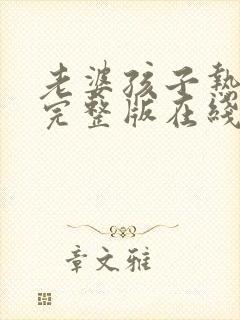 老婆孩子热
完整版在线
章文雅